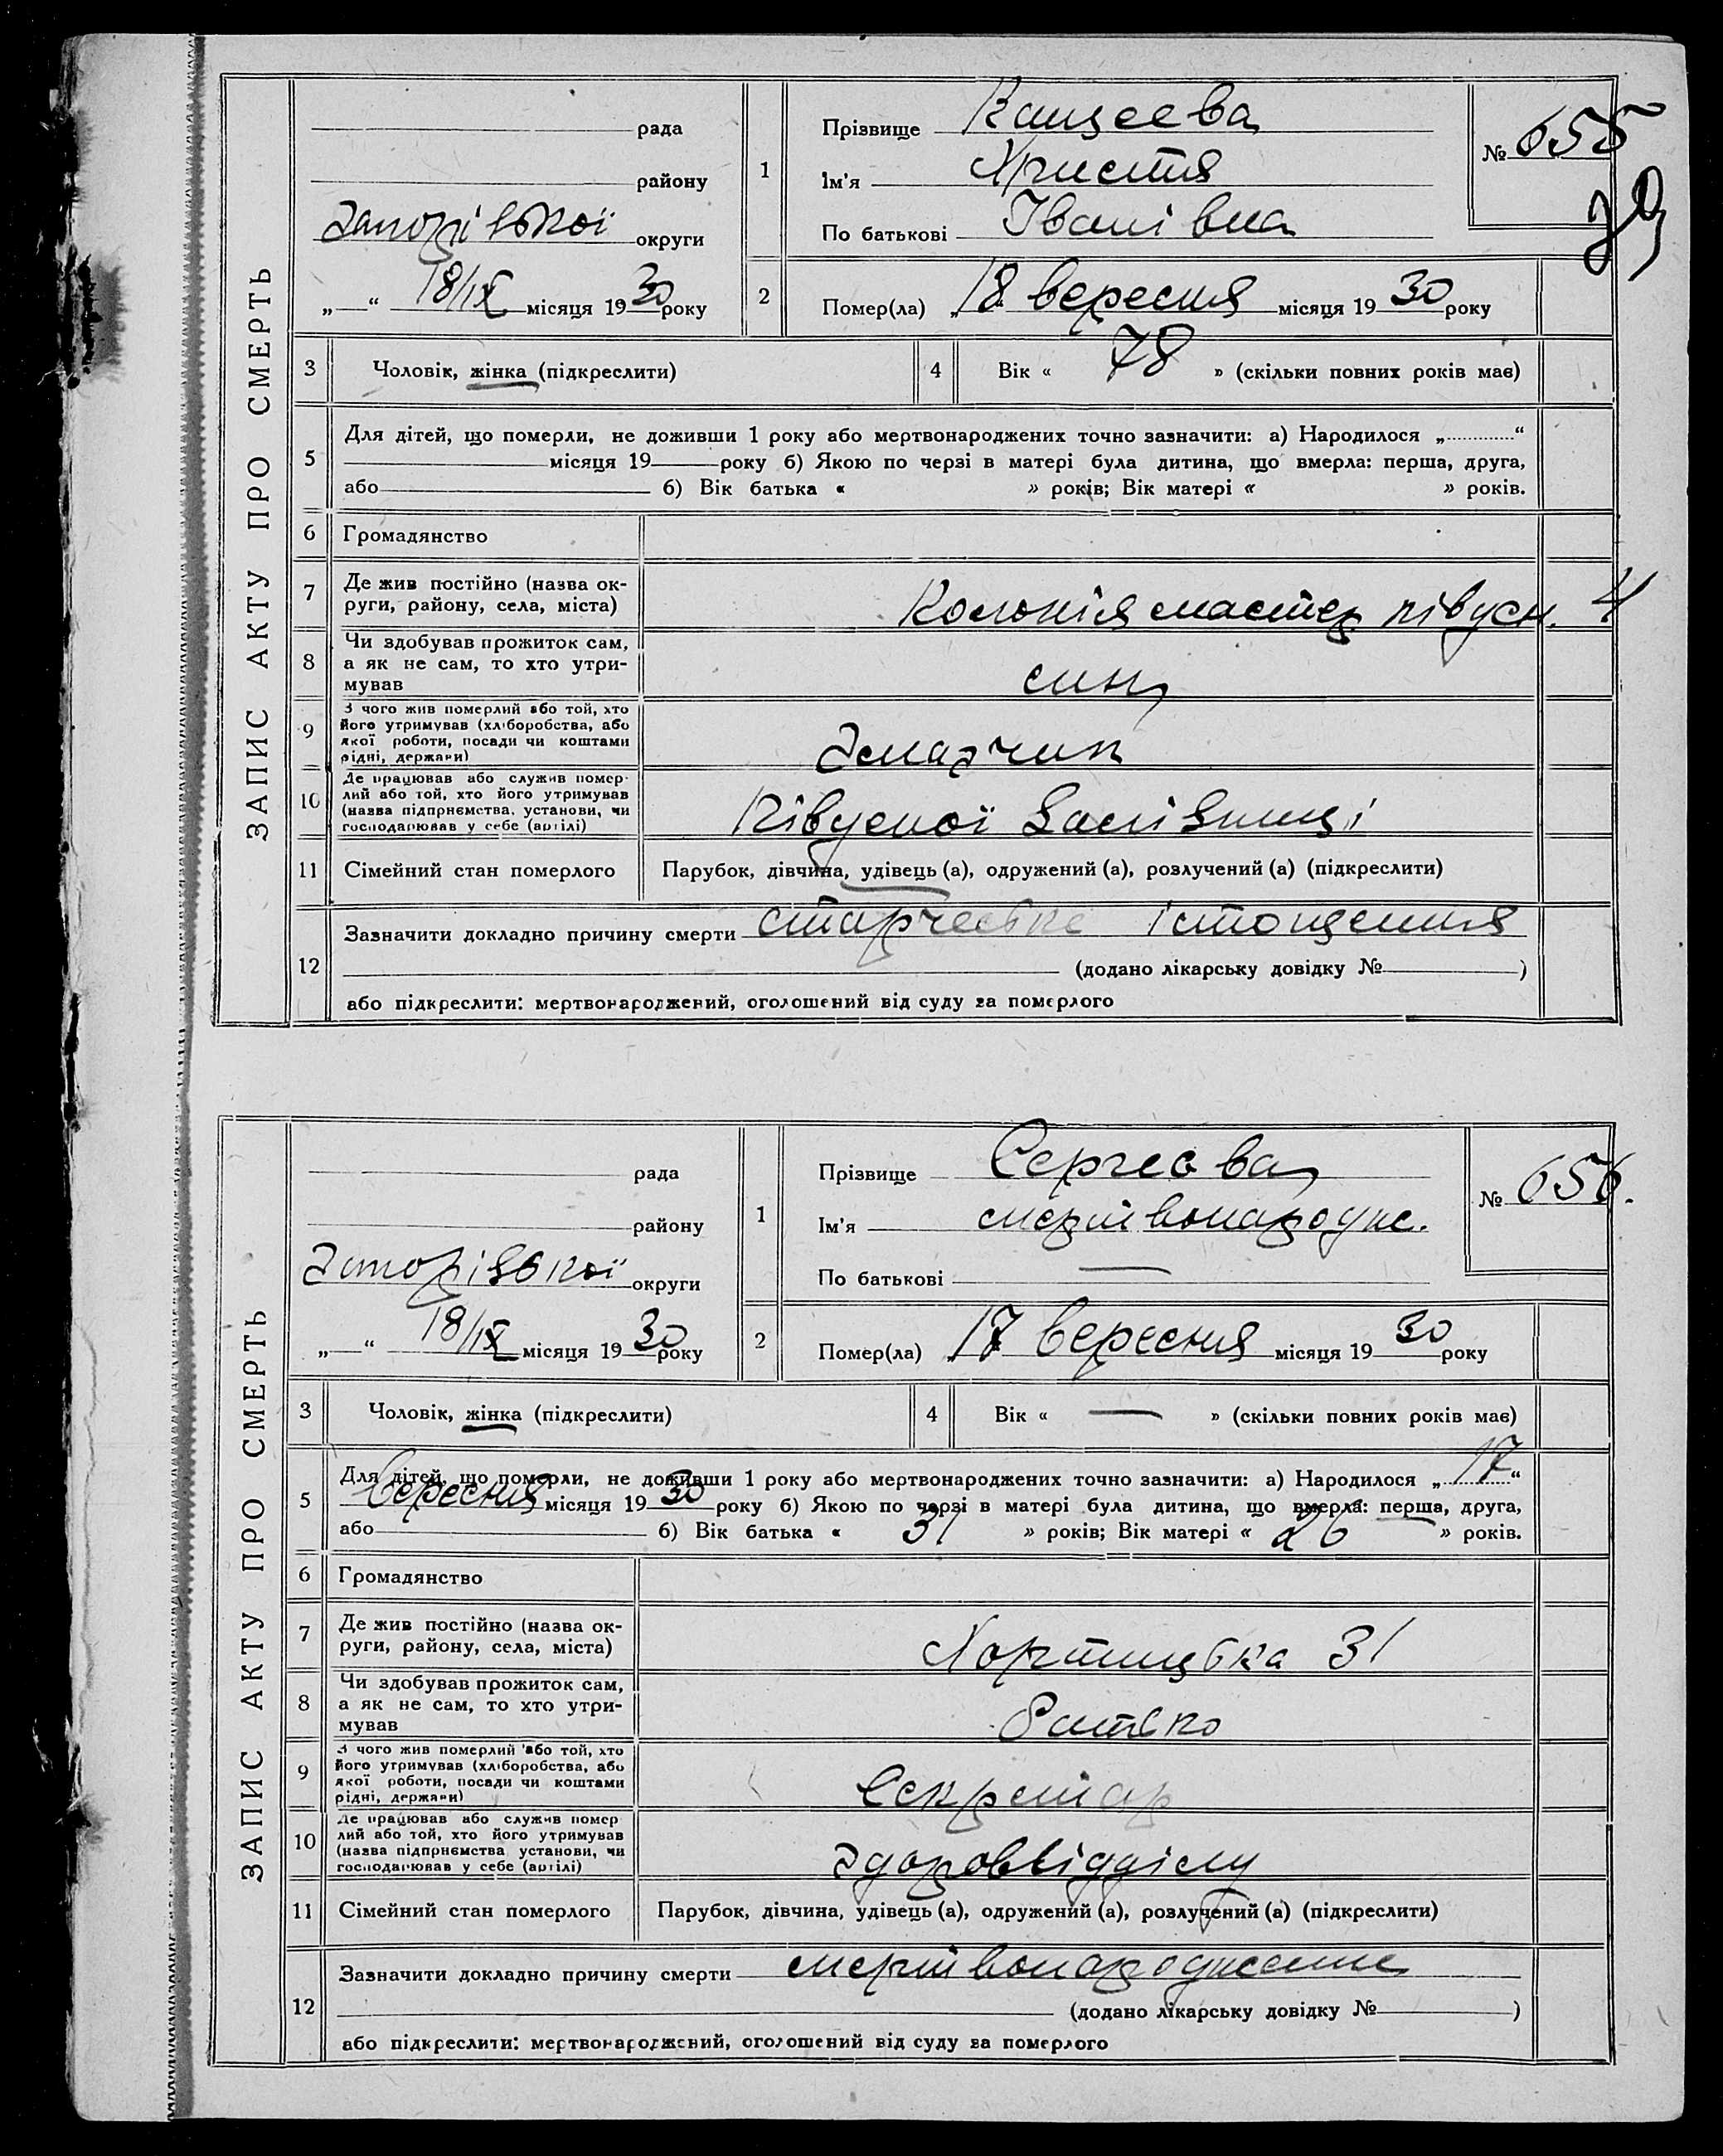 ЗАПИС АКТУ ПРО СМЕРТЬ
рада
району
Запорізької округи
„ “ 18/IX місяця 1930 року
1
Прізвище Кащеева
Ім'я Христя
По батькові Іванівна
№ 655
39
2
Помер(ла) „18 вересня місяця 1930 року
3 Чоловік, жінка (підкреслити)
4 Вік « 78 » (скільки повних років має)
5 Для дітей, що померли, не доживши 1 року або мертвонароджених точно зазначити: а) Народилося „ “
місяця 19 року б) Якою по черзі в матері була дитина, що вмерла: перша, друга,
або б) Вік батька « » років; Вік матері « » років.
6 Громадянство
7 Де жив постійно (назва округи, району, села, міста) Колонія мастер півден. 4
8 Чи здобував прожиток сам,
а як не сам, то хто утри-
мував син
9 З чого жив померлий або той, хто
його утримував (хліборобства, або
якої роботи, посади чи коштами
рідні, держави) Змазчик
10 Де працював або служив помер-
лий або той, хто його утримував
(назва підприємства, установи, чи
господарював у себе (артілі)
11 Сімейний стан померлого Парубок, дівчина, удівець (а), одружений (а), розлучений (а) (підкреслити)
12 Зазначити докладно причину смерти старческе істощения
(додано лікарську довідку № )
або підкреслити: мертвонароджений, оголошений від суду за померлого
ЗАПИС АКТУ ПРО СМЕРТЬ
рада
району
Запорізької округи
„ “ 18/IX місяця 1930 року
1
Прізвище Сергеева
Ім'я мертвонародж.
По батькові —
№ 656.
2
Помер(ла) 17 вересня місяця 1930 року
3 Чоловік, жінка (підкреслити)
4 Вік « — » (скільки повних років має)
5 Для дітей, що померли, не доживши 1 року або мертвонароджених точно зазначити: а) Народилося „17“
вересня місяця 1930 року б) Якою по черзі в матері була дитина, що вмерла: перша, друга,
або б) Вік батька « 31 » років; Вік матері « 26 » років.
6 Громадянство
7 Де жив постійно (назва ок-
руги, району, села, міста) Хортицька 31
8 Чи здобував прожиток сам,
а як не сам, то хто утри-
мував Батько
9 З чого жив померлий або той, хто
його утримував (хліборобства, або
якої роботи, посади чи коштами
рідні, держави) Секретар
10 Де працював або служив помер
лий або той, хто його утримував
(назва підприємства установи, чи
господарював у себе (артілі) Здороввідділу
11 Сімейний стан померлого Парубок, дівчина, удівець (а), одружений (а), розлучений (а) (підкреслити)
12 Зазначити докладно причину смерти мертвонароджение
(додано лікарську довідку № )
або підкреслити: мертвонароджений, оголошений від суду за померлого